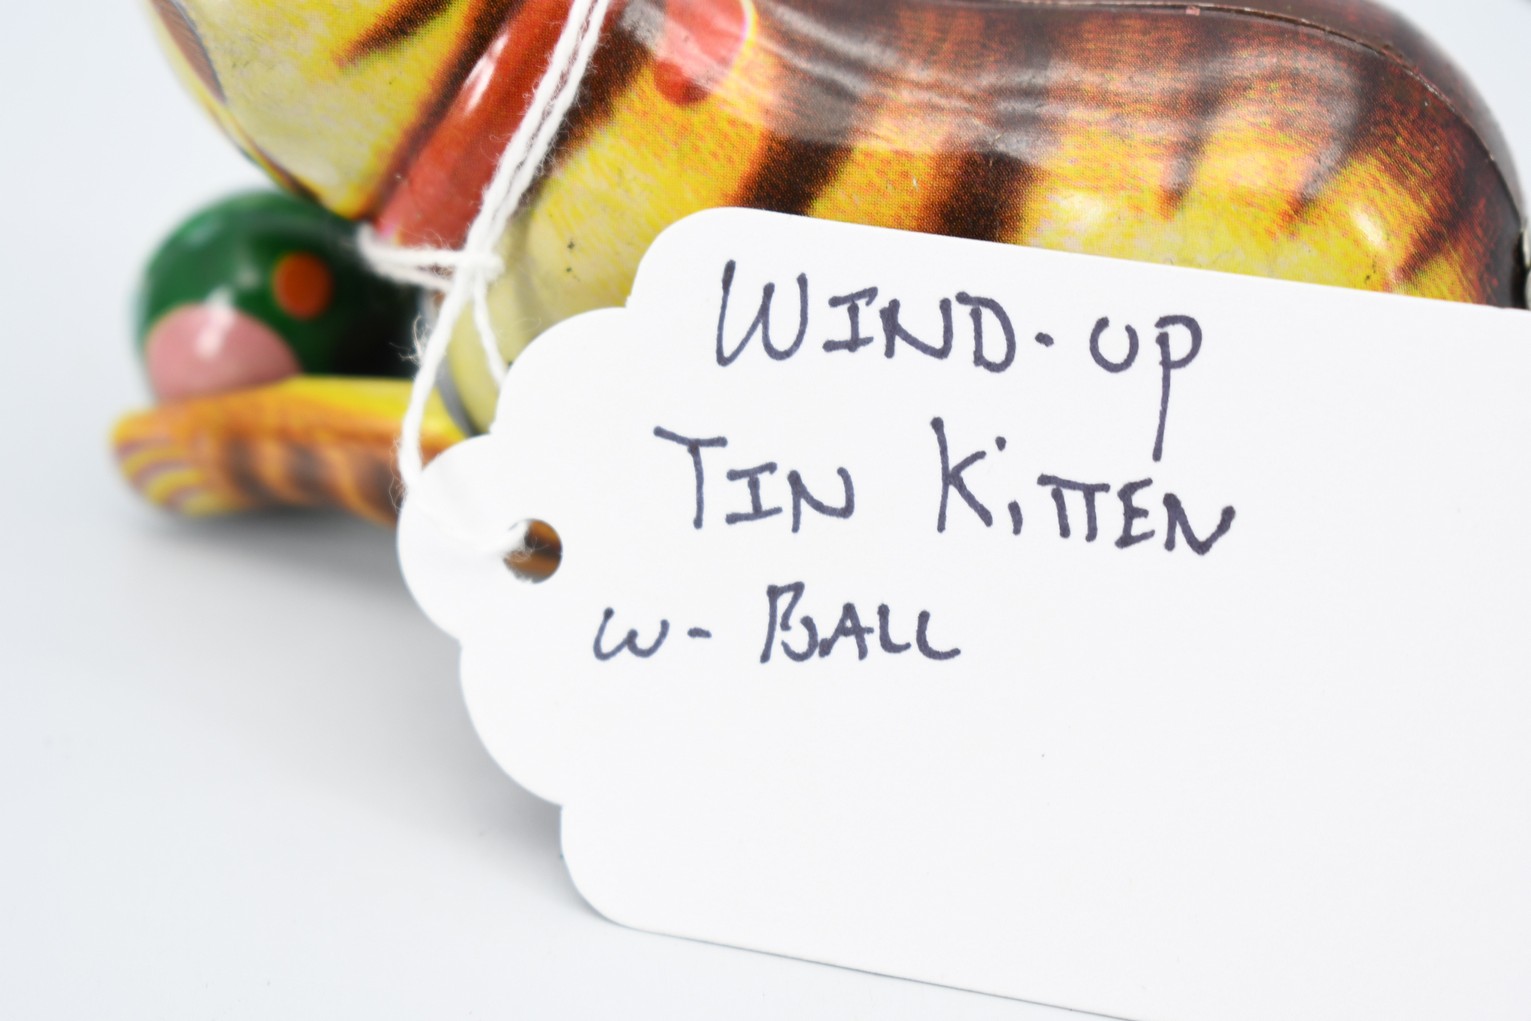 WIND-UP
TIN KITTEN
W- BALL